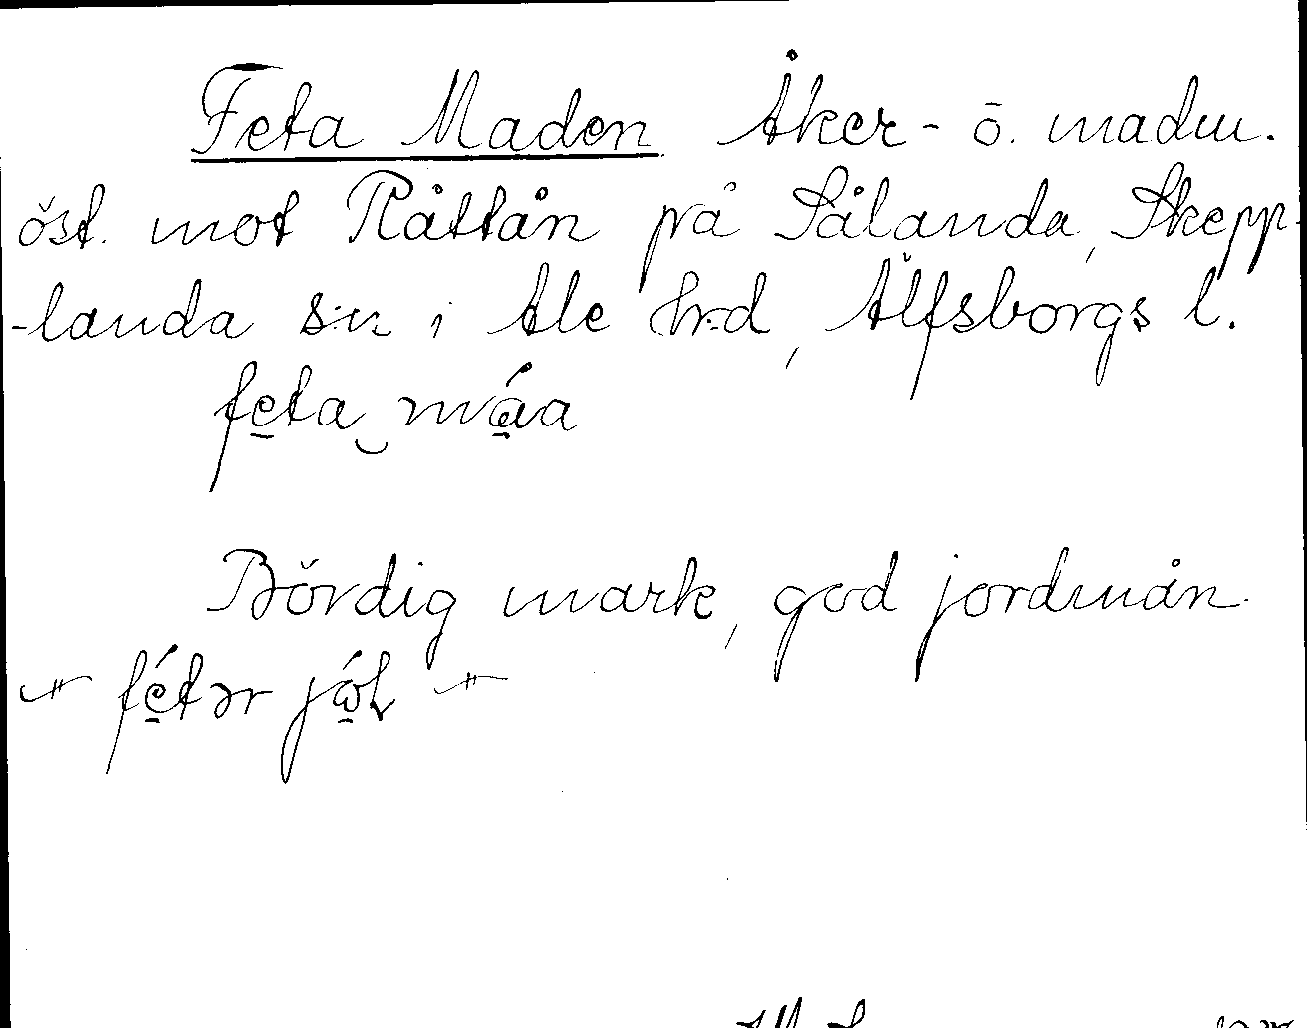 Feta Maden Åker- o. madm.
öst. mot Råttån på Sålanda, Skepp-
-landa s:n i Ale hrd, Älfsborgs l.
feta máa
Bördig mark, god jordmån.
fétər